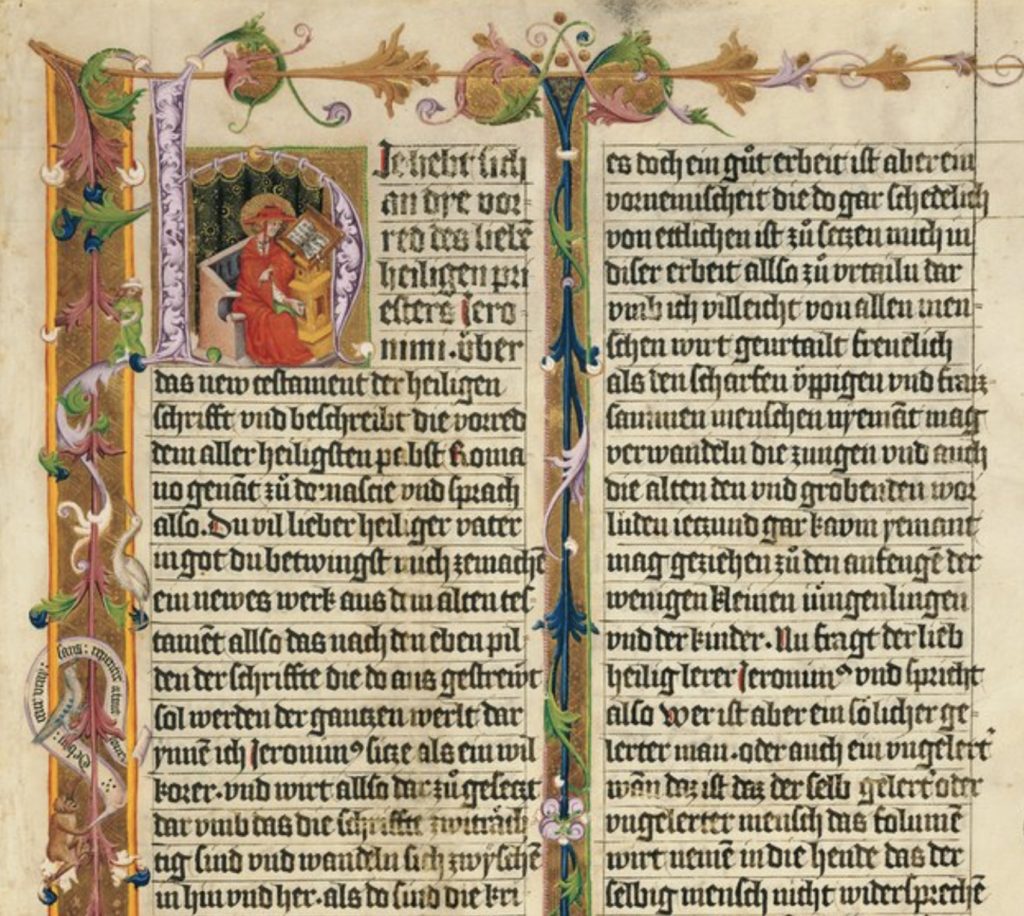 Hie hebt sich
an dye vor-
red des liebē
heiligen pri
esters Jero
nimi. über
das new testament der heiligen
schrifft vnd beschreibt die vorred
dem aller heiligsten pabst Roma
no genāt zů damascie vnd sprach
also. Du vil lieber heiliger vater
in got du betwingst mich zemachē
ein newes werk aus dem alten tes
tamēt allso das nach den eben pil
den der schriffte die do aus gestrewt
sol werden der gantzen werlt dar
ynnē ich Jeronimꝰ sitze als ein wil
korer. vnd wirt allso dar zů gesetzt
dar vmb das die schriffte zwiträch
tig sind vnd wandeln sich zwyschē
in hin vnd her. als do sind die kri
es doch ein gůt erbeit ist aber ein
vornemischeit die do gar schedelich
von ettlichen ist zů setzen mich in
diser erbeit allso zů vrtailn dar
vmb ich villeicht von allen men-
schen wirt geurtailt freuelich
als den scharfen üppigen vnd fraiz
sammen menschen nyemāt mag
verwandeln die zungen vnd auch
die alten den vnd grobenden wor
ietzund gar kaum yemant
mag geziehen zů den anfengē der
wenigen kleinen iüngenlingen
vnd der kinder. Nu fragt der lieb
heilig lerer Jeronimꝰ vnd spricht
also wer ist aber ein sölicher ge-
lerter man. oder auch ein vngelert
man daz ist daz der selb gelert oder
vngelerter mensch das folumē
wirt nemē in die hende das der
selbig mensch nicht widersprechē